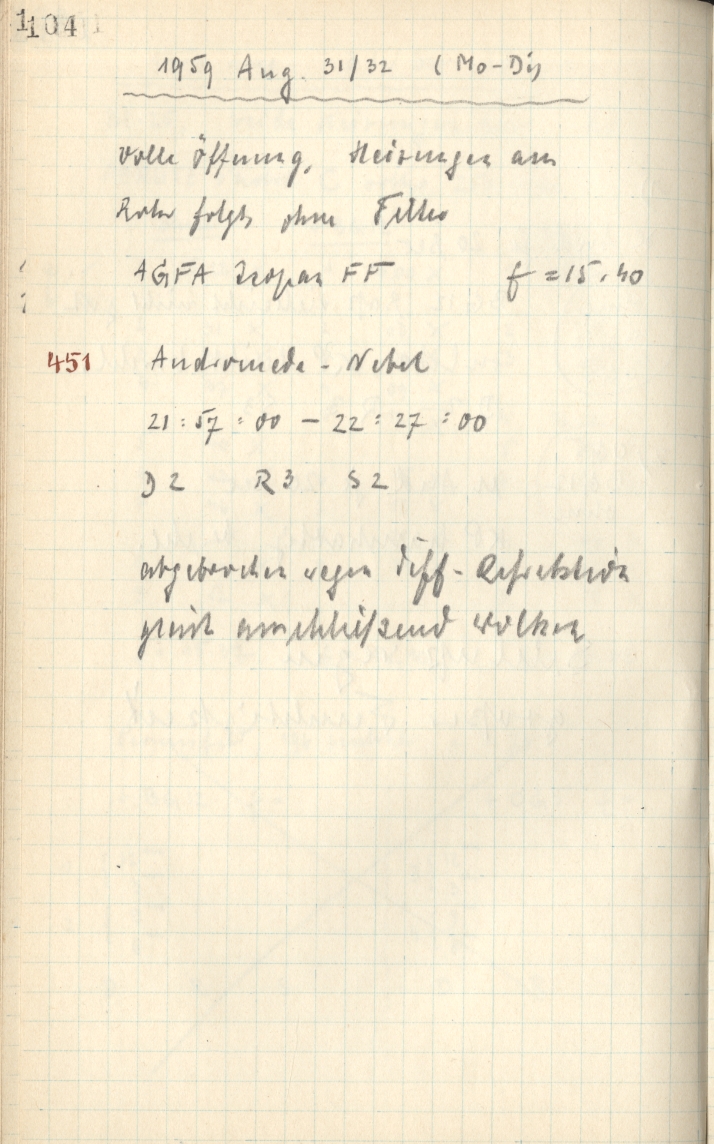 104
1959 Aug. 31/32 (Mo-Di)
volle Öffnung, Heizungen am
Rohr folgt, ohne Filter
AGFA Isopan FF f = 15.40
451 Andromeda - Nebel
21 : 57 : 00 - 22 : 27 : 00
D 2 R 3 S 2
abgebrochen wegen Diff-Refraktion
gleich anschließend Wolken